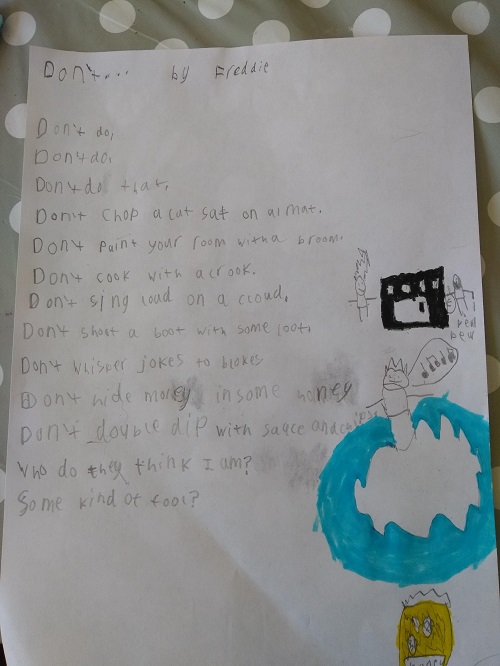 Don't... by Freddie
Don't do,
Don't do,
Don't do that,
Don't chop a cat sat on a mat.
Don't paint your room with a broom.
Don't cook with a crook.
Don't sing loud on a cloud,
Don't shoot a boot with some loot,
Don't whisper jokes to blokes
Don't hide money in some honey
Don't double dip with sauce and
Who do they think I am?
Some kind of fool?